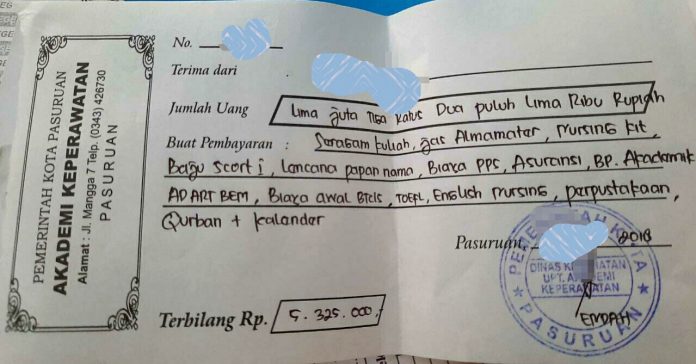 PEMERINTAH KOTA PASURUAN
AKADEMI KEPERAWATAN
Alamat : Jl. Mangga 7 Telp. (0343) 426730
PASURUAN
No.
Terima dari :
Jumlah Uang Lima Juta Tiga Ratus Dua puluh Lima Ribu Rupiah
Buat Pembayaran : Seragam kuliah, Jas Almamater, Nursing kit,
Baju scort i, Lencana papan nama, Biaya PPS, Asuransi, BP. Akademik
AD ART BEM, Biaya awal Btcls, TOEFL, English nursing, perpustakaan,
Qurban + kalender
Pasuruan, 2018
PEMERINTAH KOTA
DINAS KESEHATAN
UPT. AKADEMI
KEPERAWATAN
PASURUAN
ENDAH
Terbilang Rp. 5.325.000,-